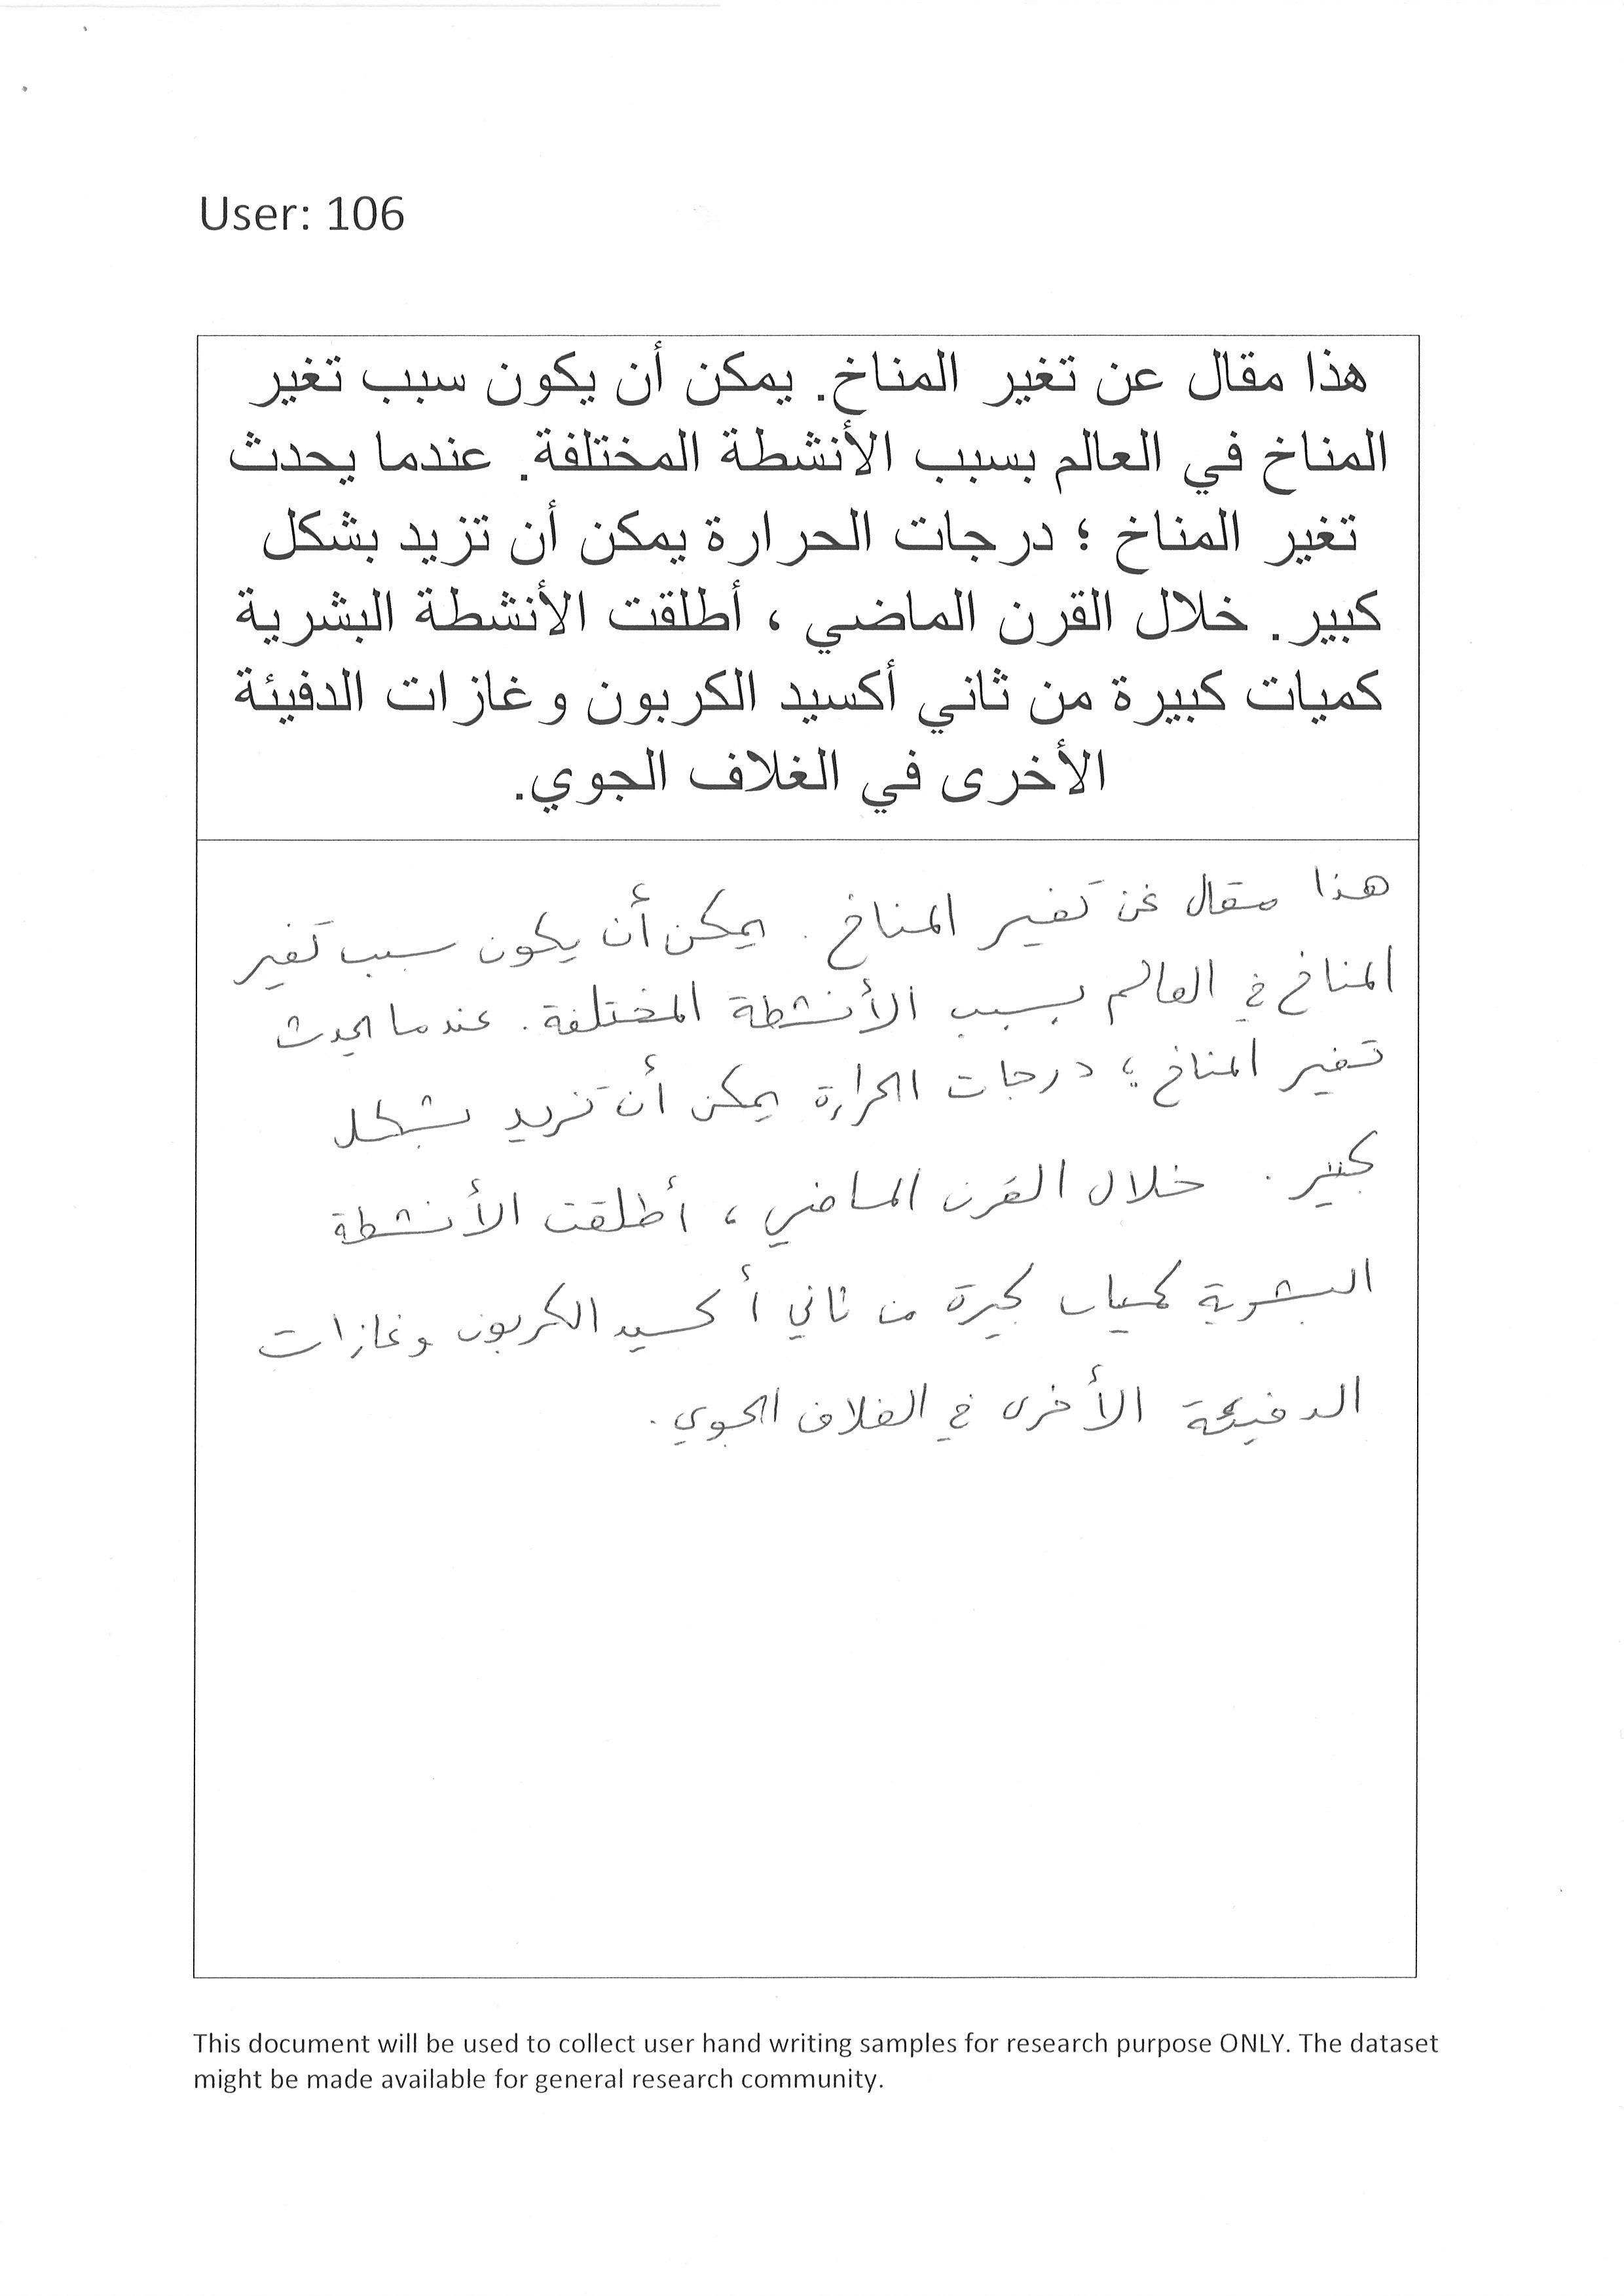 User: 106
هذا مقال عن تغير المناخ. يمكن أن يكون سبب تغير
المناخ في العالم بسبب الأنشطة المختلفة. عندما يحدث
تغير المناخ ؛ درجات الحرارة يمكن أن تزيد بشكل
كبير. خلال القرن الماضي ، أطلقت الأنشطة البشرية
كميات كبيرة من ثاني أكسيد الكربون وغازات الدفيئة
الأخرى في الغلاف الجوي.
هذا مقال عن تغير المناخ. يمكن أن يكون سبب تغير
المناخ في العالم بسبب الأنشطة المختلفة. عندما يحدث
تغير المناخ ؛ درجات الحرارة يمكن أن تزيد بشكل
كبير. خلال القرن الماضي ، أطلقت الأنشطة
البشرية كميات كبيرة من ثاني أكسيد الكربون وغازات
الدفيئة الأخرى في الغلاف الجوي.
This document will be used to collect user hand writing samples for research purpose ONLY. The dataset
might be made available for general research community.